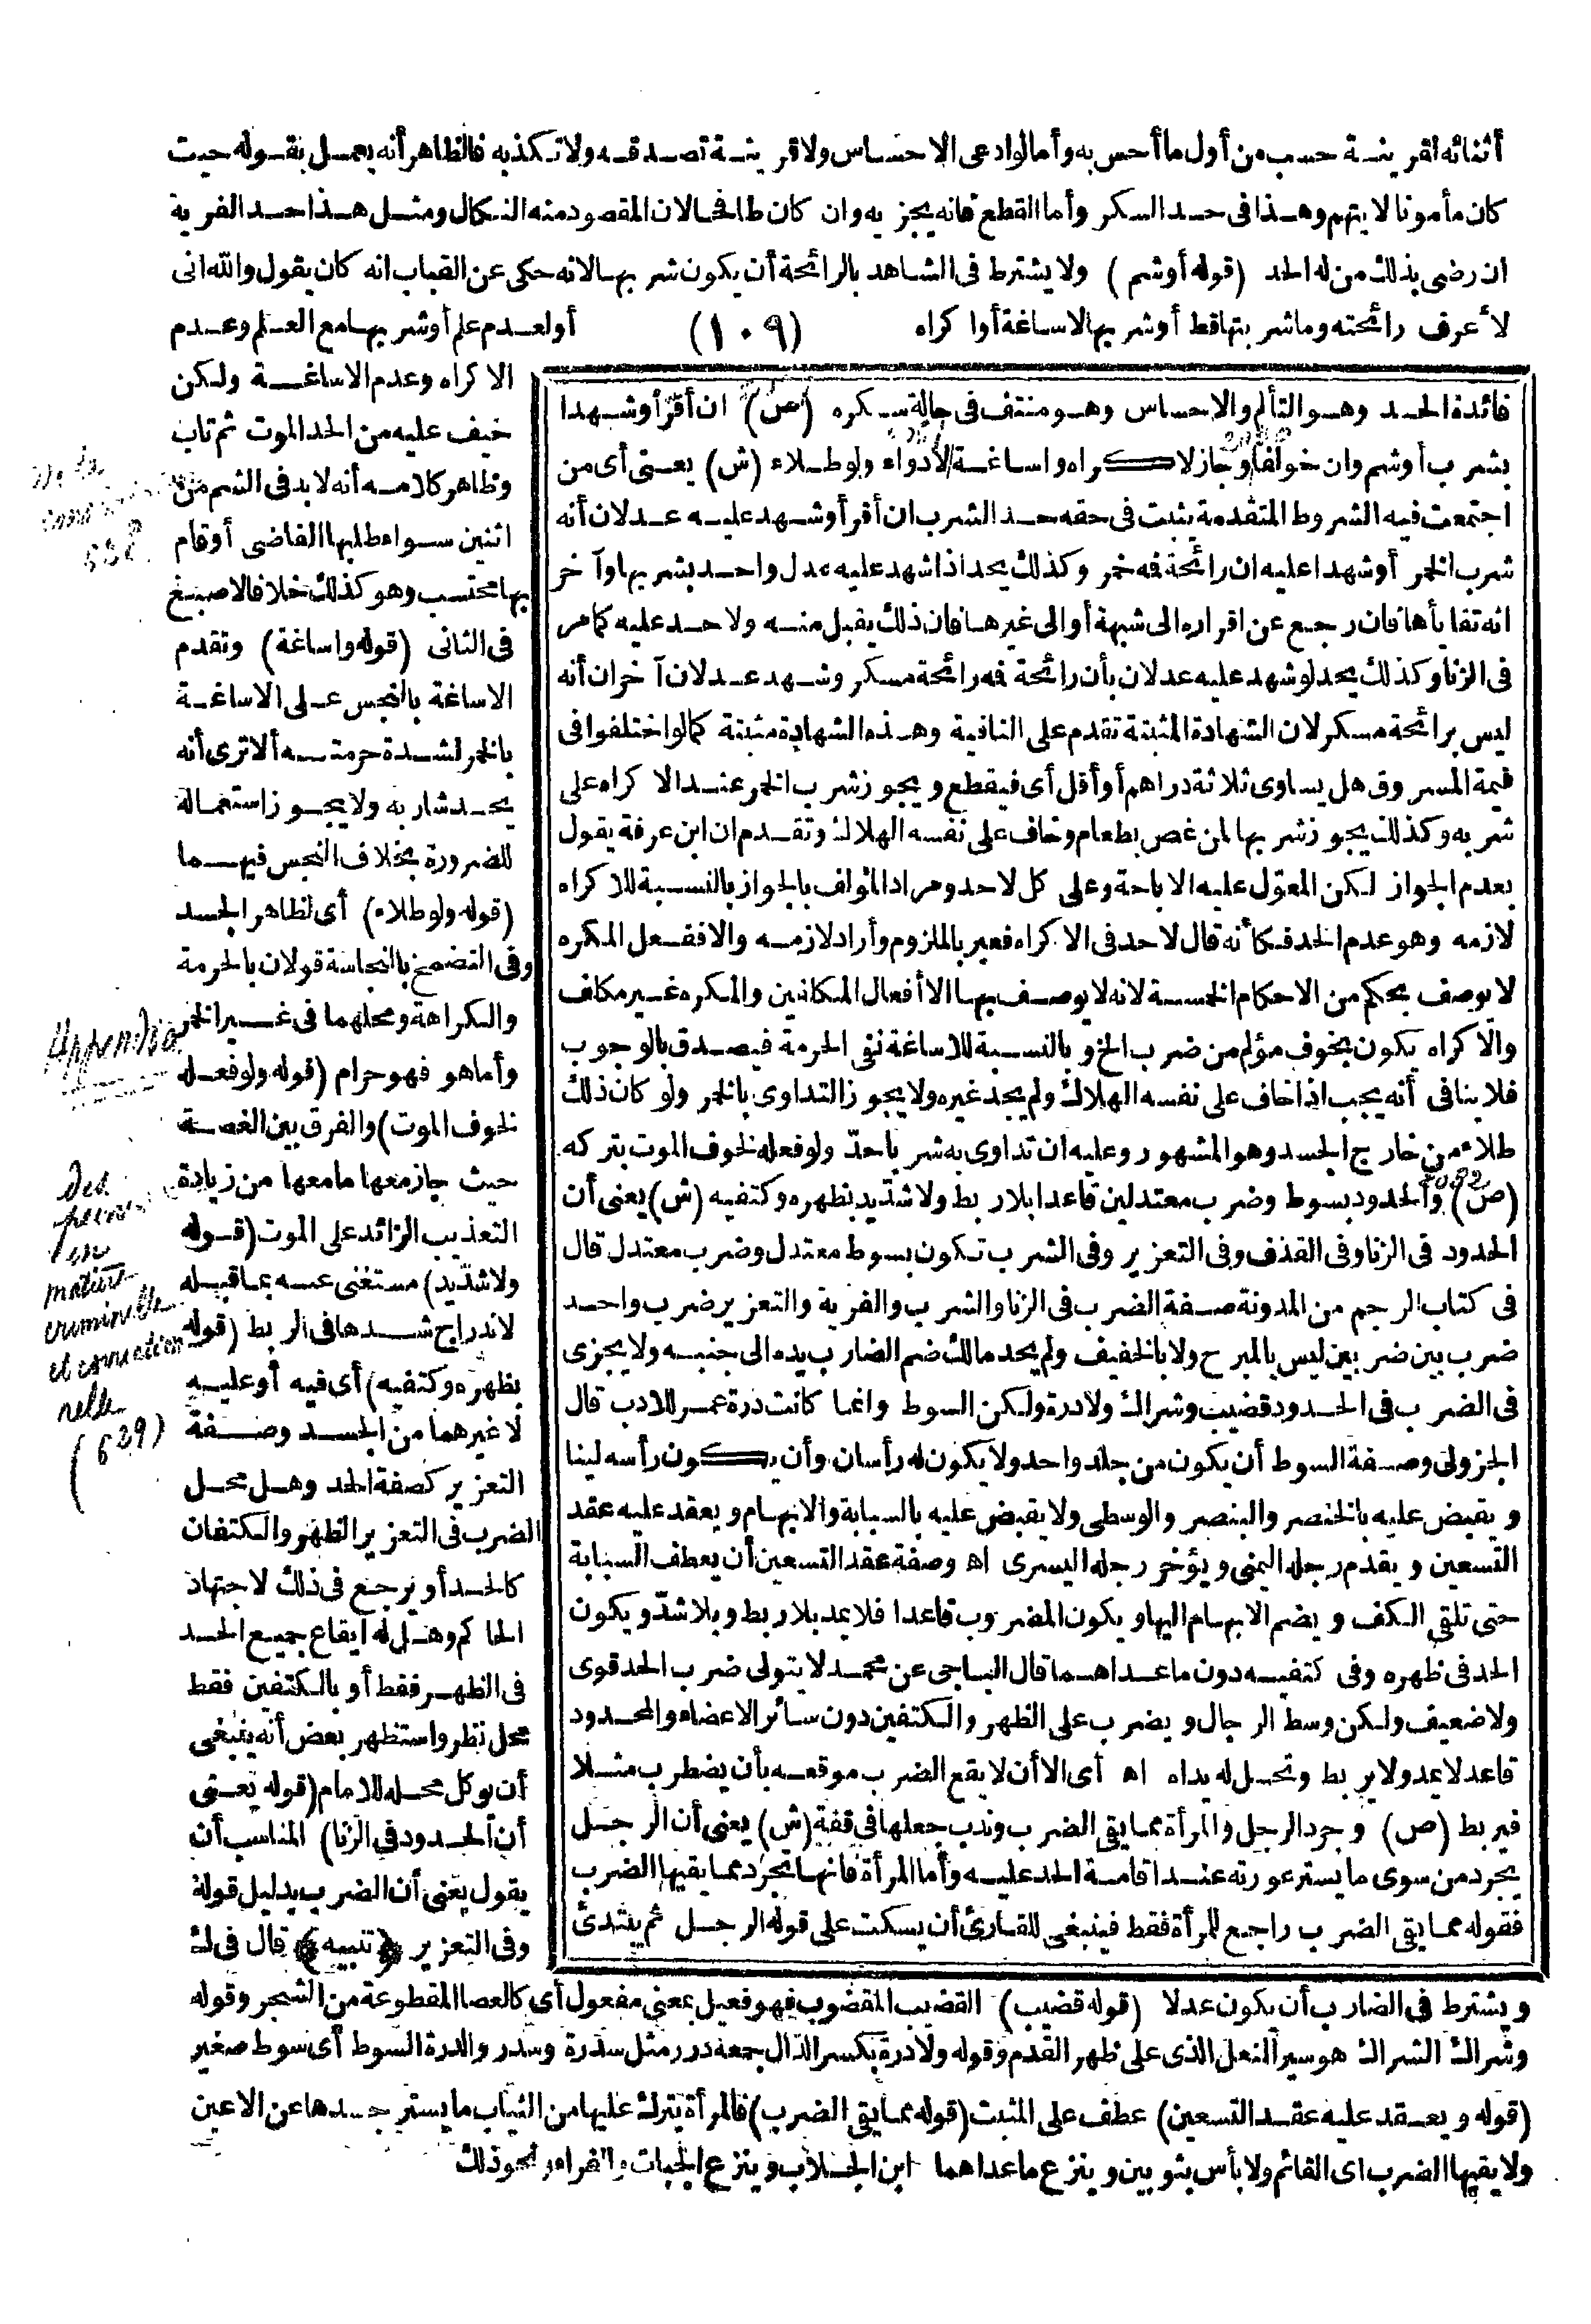 أثنائه لقرينة حسب من أول ما أحس به وأما لو ادعى الاحساس ولا قرينة تصدقه ولا تكذبه فالظاهر أنه يعمل بقوله حيث
كان مأمونا لا يتهم وهذا فى حد السكر وأما القطع فانه يجزيه وان كان طافحا لان المقصود منه النكال ومثل هذا حد الفرية
ان رضى بذلك من له الحد (قوله أو شم) ولا يشترط فى الشاهد بالرائحة أن يكون شربها لانه حكى عن القباب انه كان يقول والله انى
لأعرف رائحته وما شربتها قط أو شربها لاساغة أو اكراه
(١٠٩)
أو لعدم علم أو شربها مع العلم وعدم
الاكراه وعدم الاساغة ولكن
خيف عليه من الحد الموت ثم تاب
وظاهر كلامه أنه لا بد فى الشم من
اثنين سواء طلبها القاضى أو قام
بها محتسب وهو كذلك خلافا لاصبغ
فى الثانى (قوله واساغة) وتقدم
الاساغة بالنجس على الاساغة
بالخمر لشدة حرمته ألا ترى أنه
يحد شاربه ولا يجوز استعماله
للضرورة بخلاف النجس فيهما
(قوله ولو طلاء) أى لظاهر الجسد
وفى التضمخ بالنجاسة قولان بالحرمة
والكراهة ومحلهما فى غير الخمر
وأما هو فهو حرام (قوله ولو فعله
لخوف الموت) والفرق بين الغصة
حيث جاز معها ما معها من زيادة
التعذيب الزائد على الموت (قوله
ولا شد يد) مستغنى عنه بما قبله
لاندراج شدها فى الربط (قوله
بظهره وكتفيه) أى فيه أو عليه
لا غيرهما من الجسد وصفة
التعزير كصفة الحد وهل محل
الضرب فى التعزير الظهر والكتفان
كالحد أو يرجع فى ذلك لاجتهاد
الحاكم وهل له ايقاع جميع الحد
فى الظهر فقط أو بالكتفين فقط
محل نظر واستظهر بعض أنه ينبغى
أن يوكل محله للامام (قوله يعنى
أن الحدود فى الزنا) المناسب أن
يقول يعنى أن الضرب بدليل قوله
وفى التعزير ﴿تنبيه﴾ قال فى ك
فائدة الحد وهو التألم والاحساس وهو منتف فى حالة سكره (ص) ان أقر أو شهدا
بشرب أو شم وان خولفا وجاز لاكراه واساغة لا دواء ولو طلاء (ش) يعنى أى من
اجتمعت فيه الشروط المتقدمة يثبت فى حقه حد الشرب ان أقر أو شهد عليه عدلان أنه
شرب الخمر أو شهدا عليه ان رائحة فه خمر وكذلك يحد اذا شهد عليه عدل واحد بشربها وآخر
انه تقايأها فان رجع عن اقراره الى شبهة أو الى غيرها فان ذلك يقبل منه ولا حد عليه كما مر
فى الزنا وكذلك يحد لو شهد عليه عدلان بأن رائحة فه رائحة مسكر وشهد عدلان آخران أنه
ليس برائحة مسكر لان الشهادة المثبتة تقدم على النافية وهذه الشهادة مثبتة كما لو اختلفوا فى
قيمة المسروق هل يساوى ثلاثة دراهم أو أقل أى فيقطع ويجوز شرب الخمر عند الاكراه على
شربه وكذلك يجوز شربها لمن غص بطعام وخاف على نفسه الهلاك وتقدم ان ابن عرفة يقول
بعدم الجواز لكن المعوّل عليه الاباحة وعلى كل لا حد ومراد المؤلف بالجواز بالنسبة للاكراه
لازمه وهو عدم الحد فكأنه قال لا حد فى الاكراه فعبر بالملزوم وأراد لازمه والا ففعل المكره
لا يوصف بحكم من الاحكام الخمسة لانه لا يوصف بها الا أفعال المكلفين والمكره غير مكلف
والاكراه يكون بخوف مؤلم من ضرب الخ وبالنسبة للاساغة نفى الحرمة فيصدق بالوجوب
فلا ينافى أنه يجب اذا خاف على نفسه الهلاك ولم يجد غيره ولا يجوز التداوى بالخمر ولو كان ذلك
طلاء من خارج الجسد وهو المشهور وعليه ان تداوى به شربا حدّ ولو فعله لخوف الموت بتركه
(ص) والحدود بسوط وضرب معتدلين قاعدا بلا ربط ولا شد يد بظهره وكتفيه (ش) يعنى أن
الحدود فى الزنا وفى القذف وفى التعزير وفى الشرب تكون بسوط معتدل وضرب معتدل قال
فى كتاب الرجم من المدونة صفة الضرب فى الزنا والشرب والفرية والتعزير ضرب واحد
ضرب بين ضربين ليس بالمبرح ولا بالخفيف ولم يحد مالك ضم الضارب يده الى جنبه ولا يجزى
فى الضرب فى الحدود قضيب وشراك ولا درة ولكن السوط وانما كانت درة عمر للادب قال
الجزولى وصفة السوط أن يكون من جلد واحد ولا يكون له رأسان وأن يكون رأسه لينا
ويقبض عليه بالخنصر والبنصر والوسطى ولا يقبض عليه بالسبابة والابهام ويعقد عليه عقد
التسعين ويقدم رجله اليمنى ويؤخر رجله اليسرى اه وصفة عقد التسعين أن يعطف السبابة
حتى تلقى الكف ويضم الابهام اليها ويكون المضروب قاعدا فلا يمد بلا ربط وبلا شدّ ويكون
الحد فى ظهره وفى كتفيه دون ما عداهما قال الباجى عن محمد لا يتولى ضرب الحد قوى
ولا ضعيف ولكن وسط الرجال ويضرب على الظهر والكتفين دون سائر الاعضاء والمحدود
قاعد لا يمد ولا يربط وتحل له يداه اه أى الا أن لا يقع الضرب موقعه بأن يضطرب مثلا
فيربط (ص) وجرد الرجل والمرأة مما يقى الضرب وندب جعلها فى قفة (ش) يعنى أن الرجل
يجرد من سوى ما يستر عورته عند اقامة الحد عليه وأما المرأة فانها تجرد مما يقيها الضرب
فقوله مما يقى الضرب راجع للمرأة فقط فينبغى للقارئ أن يسكت على قوله الرجل ثم يبتدئ
ويشترط فى الضارب أن يكون عدلا (قوله قضيب) القضيب المقضوب فهو فعيل بمعنى مفعول أى كالعصا المقطوعة من الشجر وقوله
وشراك الشراك هو سير النعل الذى على ظهر القدم وقوله ولا درة بكسر الدال جمعه درر مثل سدرة وسدر والدرة السوط أى سوط صغير
(قوله ويعقد عليه عقد التسعين) عطف على المثبت (قوله مما يقى الضرب) فالمرأة يترك عليها من الثياب ما يستر جسدها عن الاعين
ولا يقيها الضرب اى القائم ولا بأس بثوبين وينزع ما عداهما ابن الجلاب وينزع الجبات والفراء ونحو ذلك
Appendix
des
peines
en
matière
criminelle
et correction
nelle
(629)